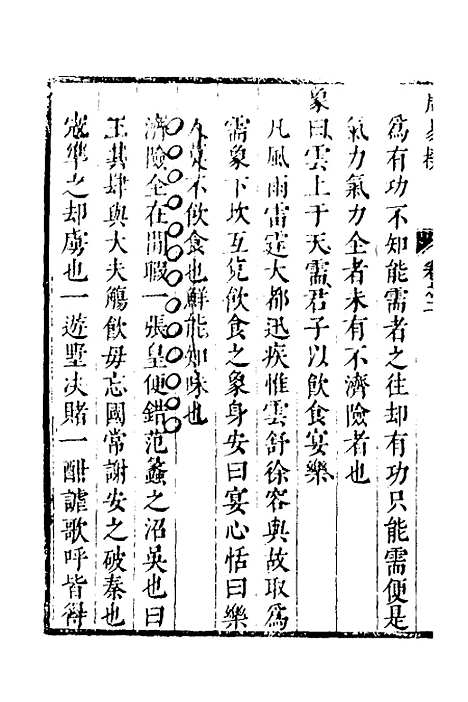 卷之二
爲有功不知能需者之往却有功只能需便是
氣力氣力全者未有不濟險者也
象曰雲上于天需君子以飲食宴樂
凡風雨雷霆大都迅疾惟雲舒徐容與故取爲
需象下坎互兌飲食之象身安曰宴心恬曰樂
人莫不飲食也鮮能知味也
濟險全在閒暇一張皇便錯范蠡之沼吳也曰
王其肆與大夫觴飲毋忘國常謝安之破秦也
寇準之却虜也一遊墅决賭一酣謔歌呼皆得